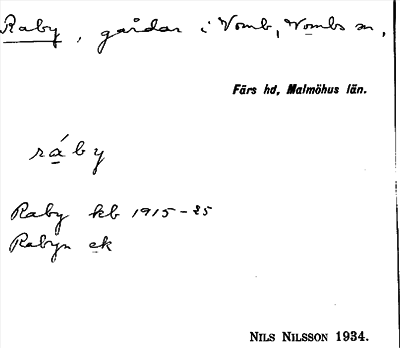 Raby, gårdar i Vomb, Vombs sn,
Färs hd, Malmöhus län.
ráby
Raby kb 1915-25
Rabyn ek
NILS NILSSON 1934.